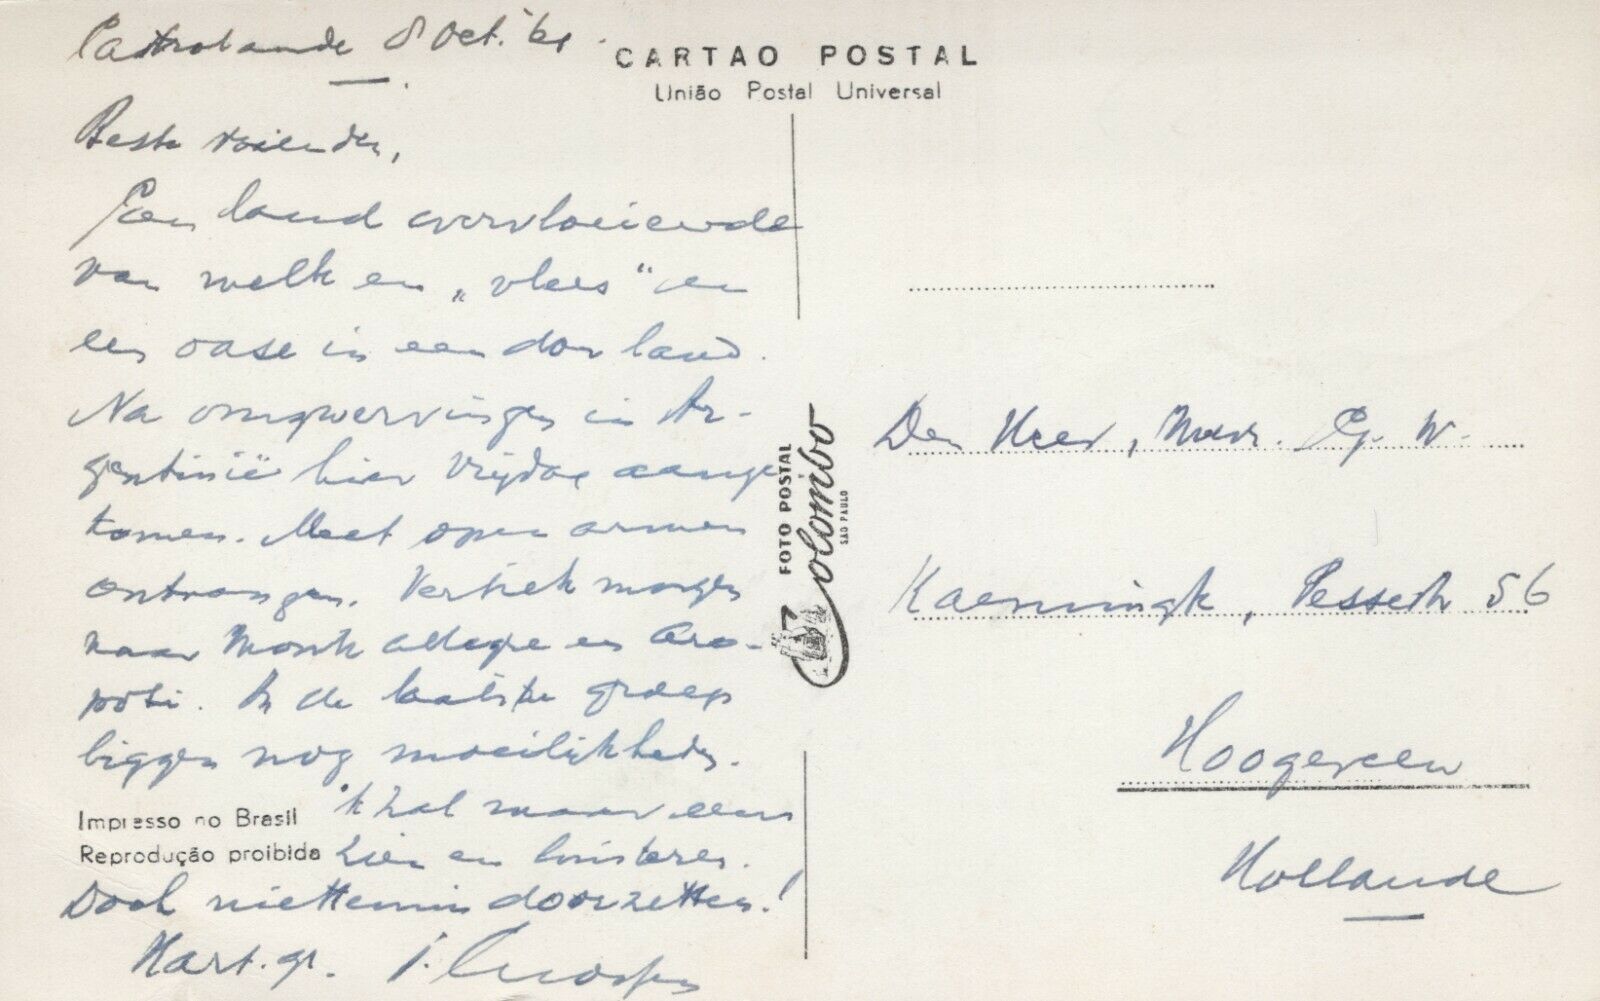 Castrolanda 8 Oct. '61.
CARTAO POSTAL
União Postal Universal
Beste vrienden,
Een land overvloeiende
van melk en „vlees“ en
een oase in een dor land.
Na omzwervingen in Ar-
gentinië hier Vrijdag aange
komen. Met open armen
ontvangen. Vertrek morgen
naar Monte Alegre en Ara-
poti. In de laatste groep
liggen nog moeilijkheden.
'k Zal maar eens
zien en luisteren.
Doch niettemin doorzetten!
Hart. gr.
Impresso no Brasil
Reprodução proibida
FOTO POSTAL
Colombo
SÃO PAULO
Den Heer, Mevr. W.
Pesserstr 56
Hoogeveen
Hollande